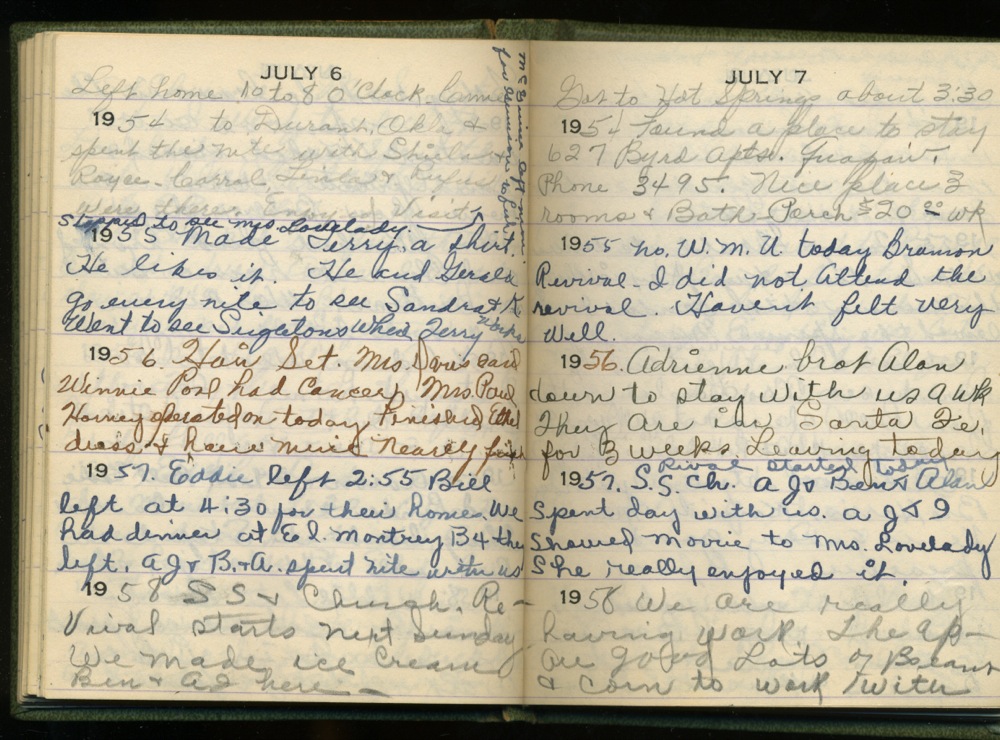 JULY 6
Left home 10 to 8 O'Clock. Came
1954 to Durant, Okla &
spent the nite with Shiela &
Royce. Carral, Linda & Rufus
were there. Enjoyed Visit
Stopped to see Mrs Lovelady.
1955 Made Terry a shirt.
He likes it. He and Gerald
go every nite to see Sandra & K.
Went to see Singletons when Terry works
1956. Hair Set. Mrs. Davis said
Winnie Pool had Cancer, Mrs. Paul
Horney operated on today Finished Ethel
dress & have mine Nearly finish
1957. Eddie left 2:55 Bill
left at 4:30 for their homes. We
had dinner at El. Montrey B4 they
left. A J & B. & A. spent nite with us
1958 S S & Church. Re-
vival starts next Sunday
We made ice cream
Ben & AJ here
JULY 7
Got to Hot Springs about 3:30
1954 Found a place to stay
627 Byrd Apts. Guapaw.
Phone 3495. Nice place 3
rooms & Bath Porch $20 00 wk
1955 No. W. M. U today Bramon
Revival - I did not attend the
revival. Havent felt very
well.
1956. Adrienne brot Alan
down to stay with us a wk
They are in Santa Fe,
for 3 weeks. Leaving today
Rival started today
1957. S.S. Ch. A J & Ben & Alan
Spent day with us. A J & I
Showed movie to Mrs. Lovelady
She really enjoyed it.
1958 We are really
having work. The ap-
are good Lots of Beans
& Corn to work with